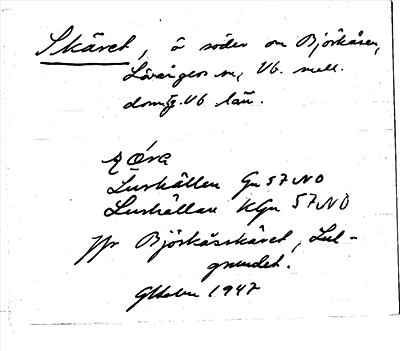 Skäret, ö söder om Björkåsen,
Lövångers sn, Vb. mell.
doms. Vb län.
Övra
Lurkällen Gn 57 NO
Lurkällan KGn 57 NO
Jfr Björkåsskäret, Lul-
grundet.
1947